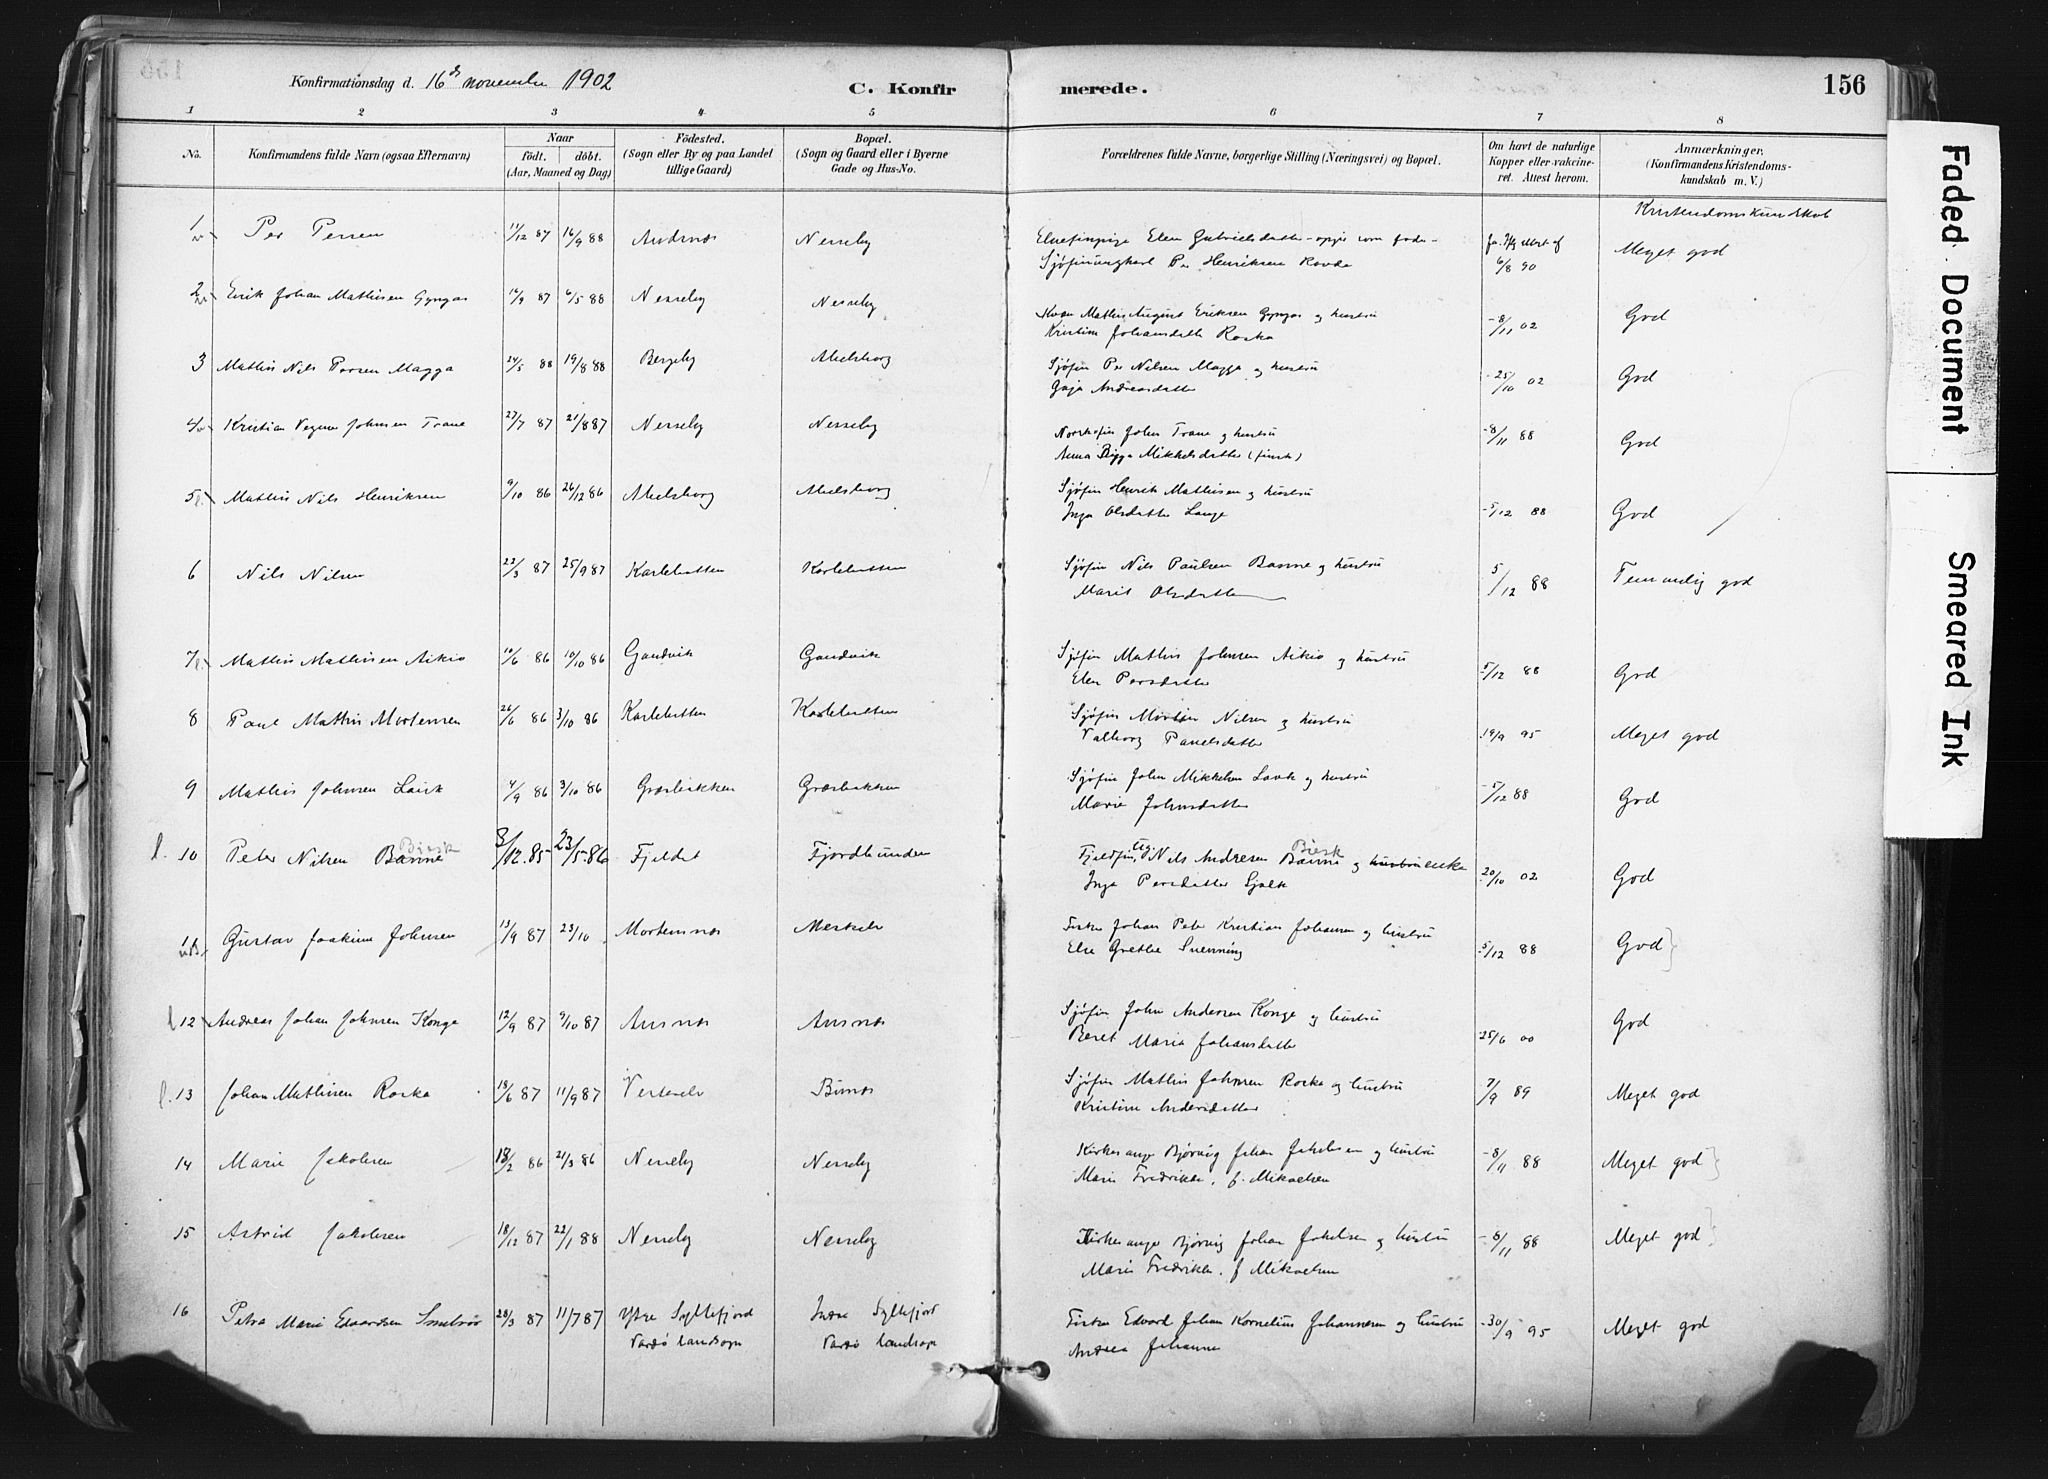 156
Konfirmationsdag d. 16de november 1902
C. Konfirmerede.
1 2 3 4 5 6 7 8
No. Konfirmandens fulde Navn (ogsaa Efternavn) Naar födt. döbt. (Aar, Maaned og Dag) Födested. (Sogn eller By og paa Landet tillige Gaard) Bopæl. (Sogn og Gaard eller i Byerne Gade og Hus-No. Forældrenes fulde Navne, borgerlige Stilling (Næringsvei) og Bopæl. Om havt de naturlige Kopper eller vakcineret. Attest herom. Anmærkninger. (Konfirmandens Kristendomskundskab m. V.)
Kristendomskundskab
1 Per Persen 11/12 87 16/9 88 Nesseby Elen Gabrielsdatter opgiv som fader
Per Henriksen 6/8 90 Meget god
2 Erik Johan Mathisen Gyngas 16/9 87 6/5 88 Nesseby Nesseby Kvæn Mathis August Eriksen Gyngas og hustru
Kristine Johansdatter Roska 8/11 02 God
3 Mathis Nils Persen Magga 24/5 88 19/8 88 Bergeby Abelsborg Sjøfin Per Nilsen Magga og hustru
Gaja Andreasdatter 25/10 02 God
4 Kristian Johnsen Trane 27/7 87 21/8 87 Nesseby Nesseby Norskfin John Trane og hustru
Anna Bigga Mikkelsdatter (finsk) 8/11 88 God
5 Mathis Nils Henriksen 9/10 86 26/12 86 Abelsborg Abelsborg Sjøfin Henrik Mathisen og hustru
Inga Olsdatter Lange 5/12 88 God
6 Nils Nilsen 22/3 87 25/9 87 Karlebotten Karlebotten Sjøfin Nils Paulsen Banne og hustru
Marit Olsdatter 5/12 88 Temmelig god
7 Mathis Mathisen Aikio 10/6 86 10/10 86 Gandvik Gandvik Sjøfin Mathis Johnsen Aikio og hustru
Elen Persdatter 5/12 88 God
8 Paul Mathis Mortensen 26/6 86 3/10 86 Karlebotten Karlebotten Sjøfin Morten Nilsen og hustru
Valborg Paulsdatter 19/9 95 Meget god
9 Mathis Johnsen Lavk 4/9 86 3/10 86 Græsbakken Græsbakken Sjøfin John Mikkelsen Lavk og hustru
Marie Johnsdatter 5/12 88 God
l. 10 Peter Nilsen Banne Biesk 3/12 85 23/5 86 Fjeldet Fjordbunden Fjeldfin Nils Andresen Banne Biesk og hustru enke
Inga Persdatter Sjalk 20/10 02 God
11 Gustav Joakim Johnsen 13/9 87 23/10 Mortensnes Meskelv Fisker Johan Peter Kristian Johansen og hustru
Else Grethe Svenning 5/12 88 God
l 12 Andreas Johan Johnsen Konge 12/9 87 9/10 87 Ausnes Ausnes Sjøfin John Andersen Konge og hustru
Beret Maria Johansdatter 25/6 00 God
l. 13 Johan Mathisen Roska 18/6 87 11/9 87 Vesterelv Bunes Sjøfin Mathis Johnsen Roska og hustru
Kristine Andersdatter 7/9 89 Meget god
14 Marie Jakobsen 18/2 86 21/3 86 Nesseby Nesseby Kirkesanger Bjørvig Johan Jakobsen og hustru
Marie Fredrikke, f. Mikaelsen 8/11 88 Meget god
15 Astrid Jakobsen 18/12 87 22/1 88 Nesseby Nesseby Kirkesanger Bjørvig Johan Jakobsen og hustru
Marie Fredrikke, f Mikaelsen 8/11 88 Meget god
16 Petra Marie Edvardsen 28/3 87 11/7 87 Ytre Syltefjord Indre Syltefjord Fisker Edvard Johan Kornelius Johannesen og hustru
Vardø landsogn Vardø landsogn Andrea Johanna 30/9 95 Meget god
Faded Document
Smeared Ink